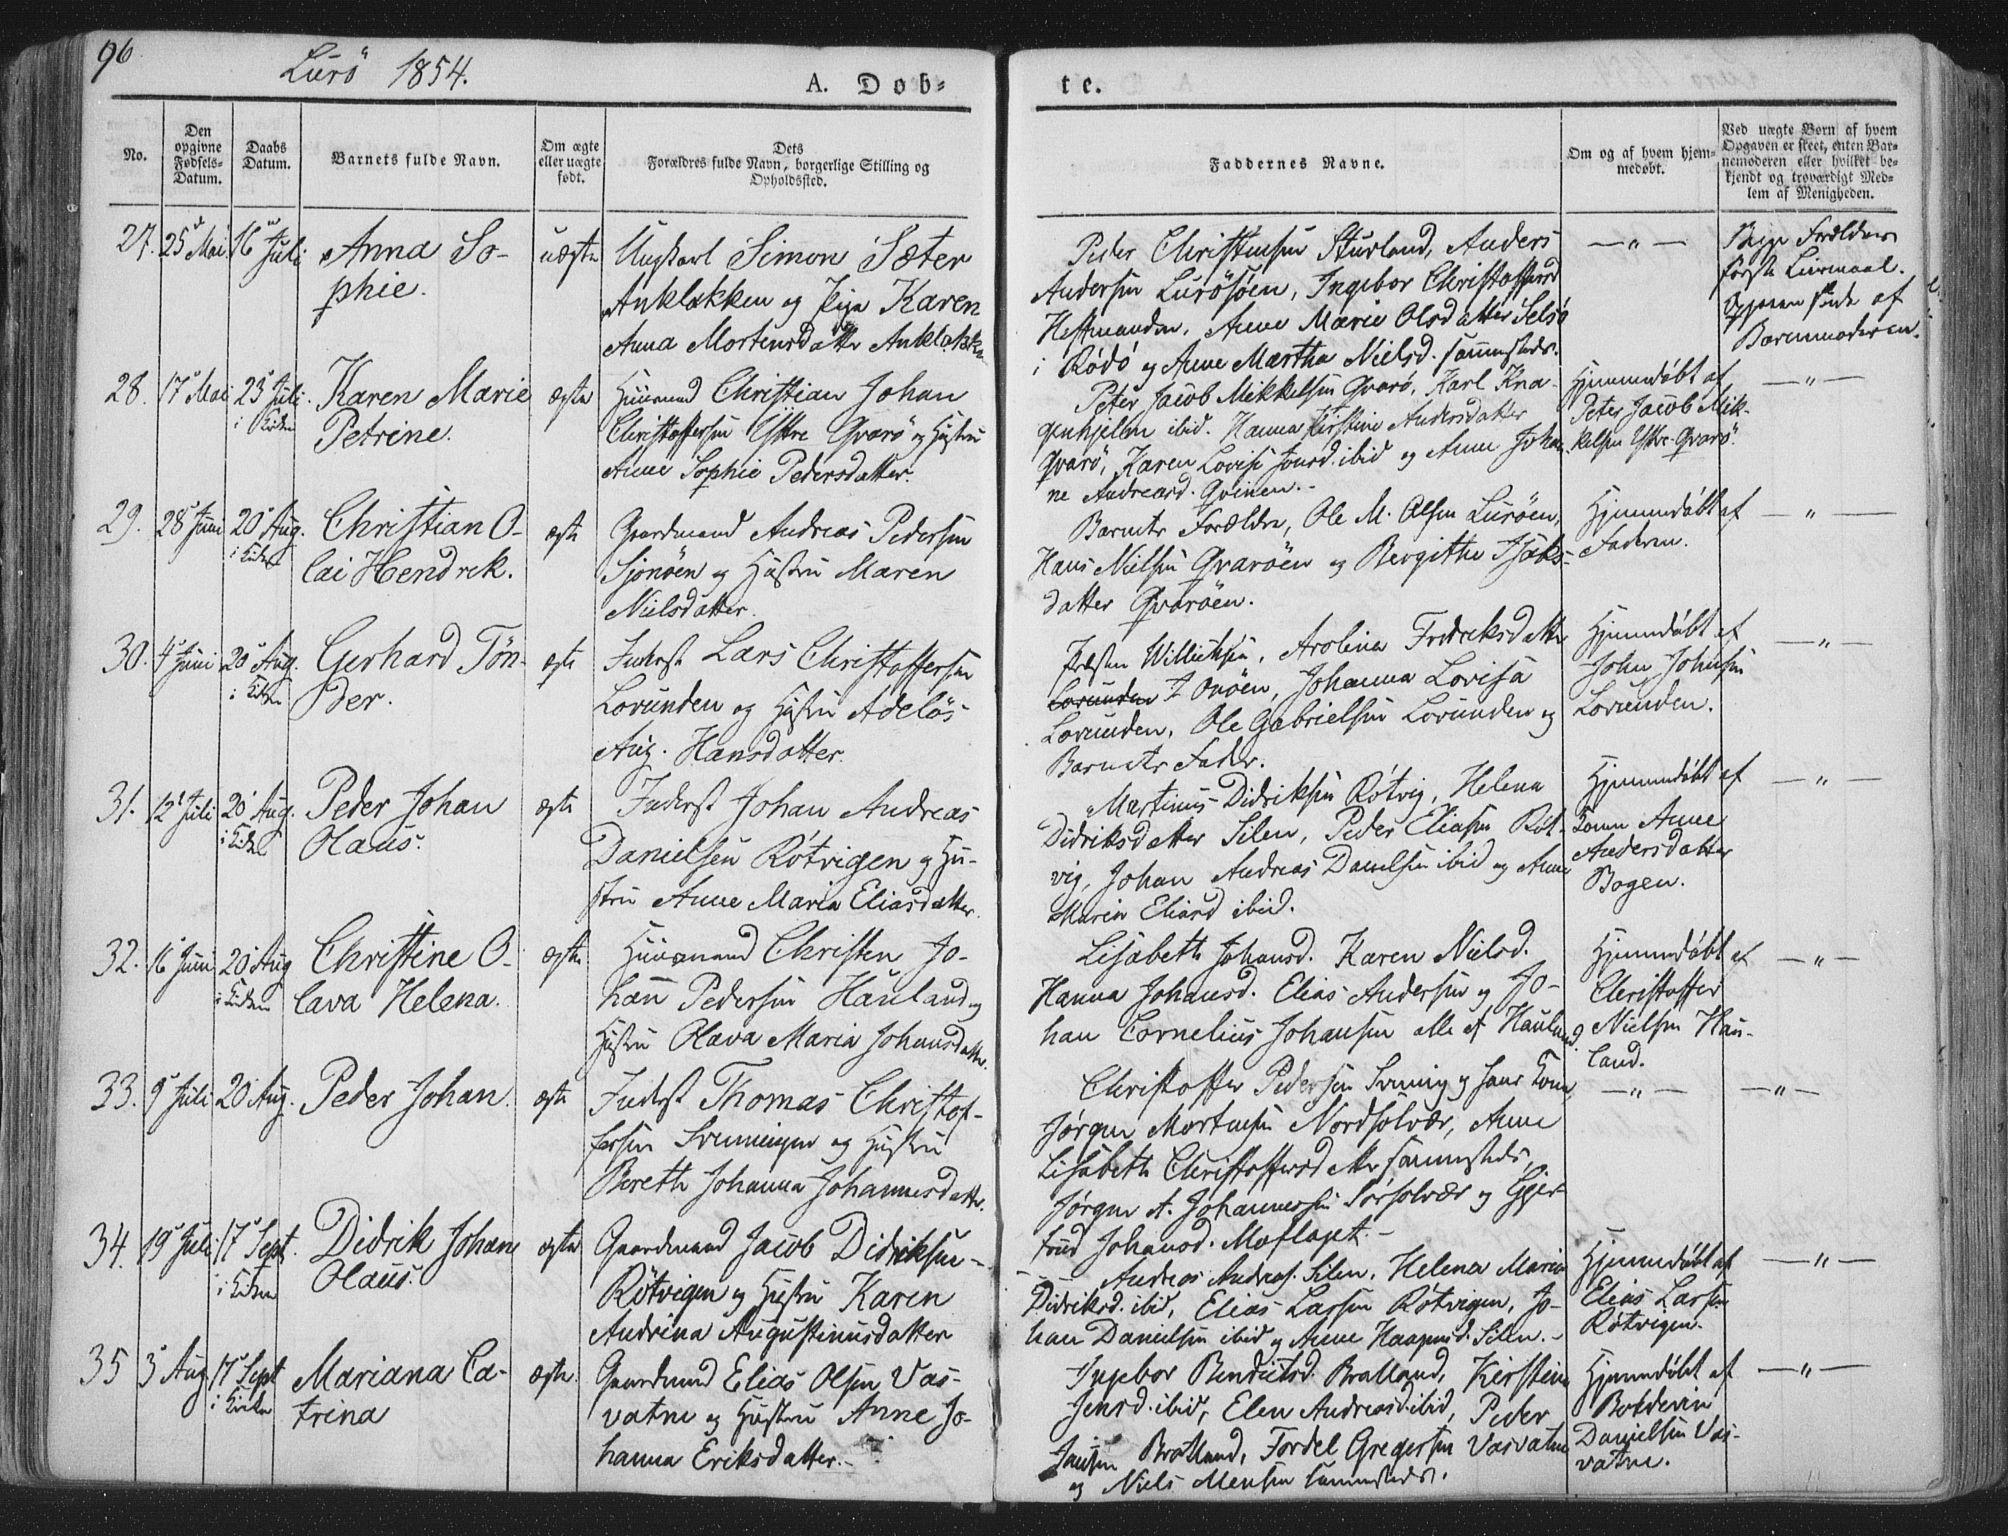 96
Lurö 1854.
A. Døb=
te.
No.
Den opgivne Fødsels-Datum.
Daabs Datum.
Barnets fulde Navn.
Om ægte eller uægte født.
Dets Forældres fulde Navn, borgerlige Stilling og Opholdssted.
Faddernes Navne.
Om og af hvem hjemmedøbt.
Ved uægte Børn af hvem Opgaven er skeet, enten Barnemoderen eller hvilket bekjendt og troværdigt Medlem af Menigheden.
27. 25 Mai 16 Juli Anna So-
phie.
uægte
Ungkarl Simon Sæter
Anklakken og Pige Karen
Anna Mortensdatter Anklakken
Peder Christensen Sturland, Anders
Andersen Lurösöen, Ingebor Christoffersd
Hestmanden, Anne Marie Olsdatter Selsö
i Rödö og Anne Martha Nielsd. sammesteds.
— " —
Begge Forældres
første Leiermaal.
Opgaven skeede af
Barnemoderen.
28. 17 Mai 23 Juli
i Kirken
Karen Marie
Petrine.
ægte
Huusmand Christian Johan
Christoffersen Ystre Qvarö og Hustru
Anne Sophie Pedersdatter.
Peter Jacob Mikkelsen Qvarö, Karl Kna-
genhjelm ibid. Hanna Kirstine Andersdatter
Qvarö, Karen Lovise Jonsd. ibid og Anne Johan
ne Andreasd. Qvinen.-
Hjemmedøbt af
Peter Jacob Mik-
kelsen Ystre-Qvarö.
— " —
29. 28 Juni 20 Aug.
i Kirken
Christian O-
lai Hendrek.
ægte
Gaardmand Andreas Pedersen
Sjonöen og Hustru Maren
Nielsdatter.
Barnets Forældre, Ole M. Olsen Luröen,
Hans Nielsen Qvaröen og Bergithe Isaks-
datter Qvaröen.
Hjemmedøbt af
Faderen.
— " —
30. 4 Juni 20 Aug.
i Kirken
Gerhard Tön-
der.
ægte
Inderst Lars Christoffersen
Lovunden og Hustru Adelös
Aug. Hansdatter.
Willichsen, Arolina Fredreksdatter
Lovunden Onöen, Johanna Lovisa
Lovunden, Ole Gabrielsen Lovunden og
Barnets Fader.
Hjemmedøbt af
John Johnsen
Lovunden.
— " —
31. 12 Juli 20 Aug.
i Kirken
Peder Johan
Olaus.
ægte
Inderst Johan Andreas
Danielsen Rötvigen og Hu-
stru Anne Maria Eliasdatter.
Martinus Didriksen Rötvig, Helena
Didriksdatter Silen, Peder Eliasen Röt-
vig, Johan Andreas Danielsen ibid og Anne
Maria Eliasd ibid.
Hjemmedøbt af
Konen Anne
Andersdatter
Bogen.
— " —
32. 16 Juni 20 Aug
i Kirken
Christine O-
lava Helena.
ægte
Huusmand Christen Jo-
han Pedersen Hauland og
Hustru Olava Maria Johansdatter.
Lisabeth Johansd. Karen Nielsd.
Hanna Johansd. Elias Andersen og Jo-
han Cornelius Johansen alle af Hauland.
Hjemmedøbt af
Christoffer
Nielsen Hau-
land.
— " —
33. 9 Juli 20 Aug. Peder Johan.
ægte
Inderst Thomas Christof-
fersen Svenningen og Hustru
Bereth Johanna Johannesdatter.
Christoffer Pedersen Svening og hans Kone,
Jörgen Mortensen Nordsolvær, Anne
Lisabeth Christoffersdatter sammesteds,
Jörgen A. Johannessen Sörsolvær og Gjer-
trud Johansd. Moflaget.-
— " —
— " —
34. 19 Juli 17 Sept.
i Kirken
Didrik Johan
Olaus.
ægte
Gaardmand Jacob Didriksen
Rötvigen og Hustru Karen
Andrina Augustinusdatter
Andreas Andreas. Silen, Helena Maria
Didriksd. ibid, Elias Larsen Rötvigen, Jo-
han Danielsen ibid og Anne Haagensd. Silen.-
Hjemmedøbt af
Elias Larsen
Rötvigen.
— " —
35 3 Aug 17 Sept
i Kirken
Mariana Ca-
trina
ægte.
Gaardmand Elias Olsen Vas-
vatne og Hustru Anne Jo-
hanna Eriksdatter.-
Ingebor Bendictsd. Bratland, Kirstine
Jensd. ibid, Elen Andreasd. ibid, Peder
Jansen Bratland, Fordel Gregersen Vasvatne
og Niels Mensen sammesteds.
Hjemmedøbt af
Botdevin
Danielsen Vas-
vatne.
— " —